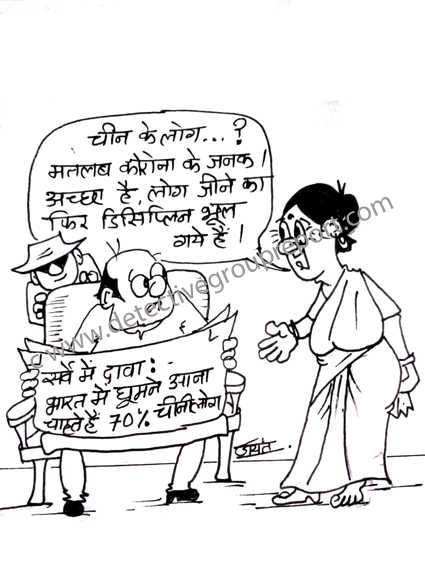 चीन के लोग...?
मतलब कोरोना के जनक!
अच्छा है, लोग जीने का
फिर डिसिप्लिन भूल
गये हैं!
सर्वे में दावा:-
भारत में घूमने आना
चाहते हैं 70% चीनी लोग
जयंत.
© www.detectivegroupreport.com